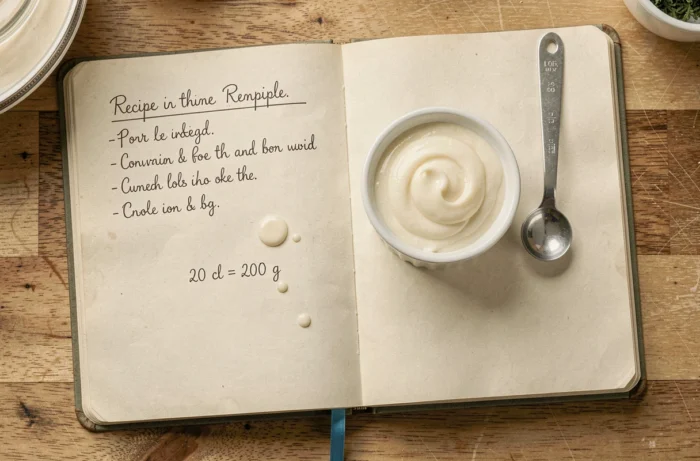 Recipe in thine Rempiple.
-Porr le indegd.
-Convnin & foe th and bon wuid
-Cunech lols iho oke the.
-Cnole ion & bg.
20 cl = 200 g